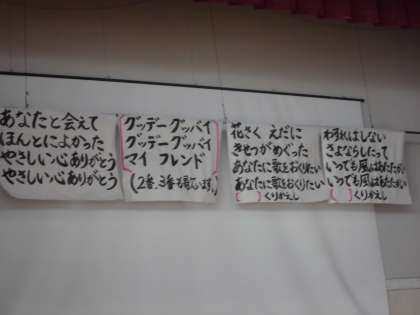 あなたと会えて
ほんとによかった
やさしい心ありがとう
やさしい心ありがとう
グッデーグッバイ
グッデーグッバイ
マイ フレンド
(2番、3番も同じいます。)
花さく えだに
きせつがめぐった
あなたに歌をおくりたい
あなたに歌をおくりたい
( ) くりかえし
わすれはしない
さよならしたって
いつでも風はあたたかい
いつでも風はあたたかい
( ) くりかえし